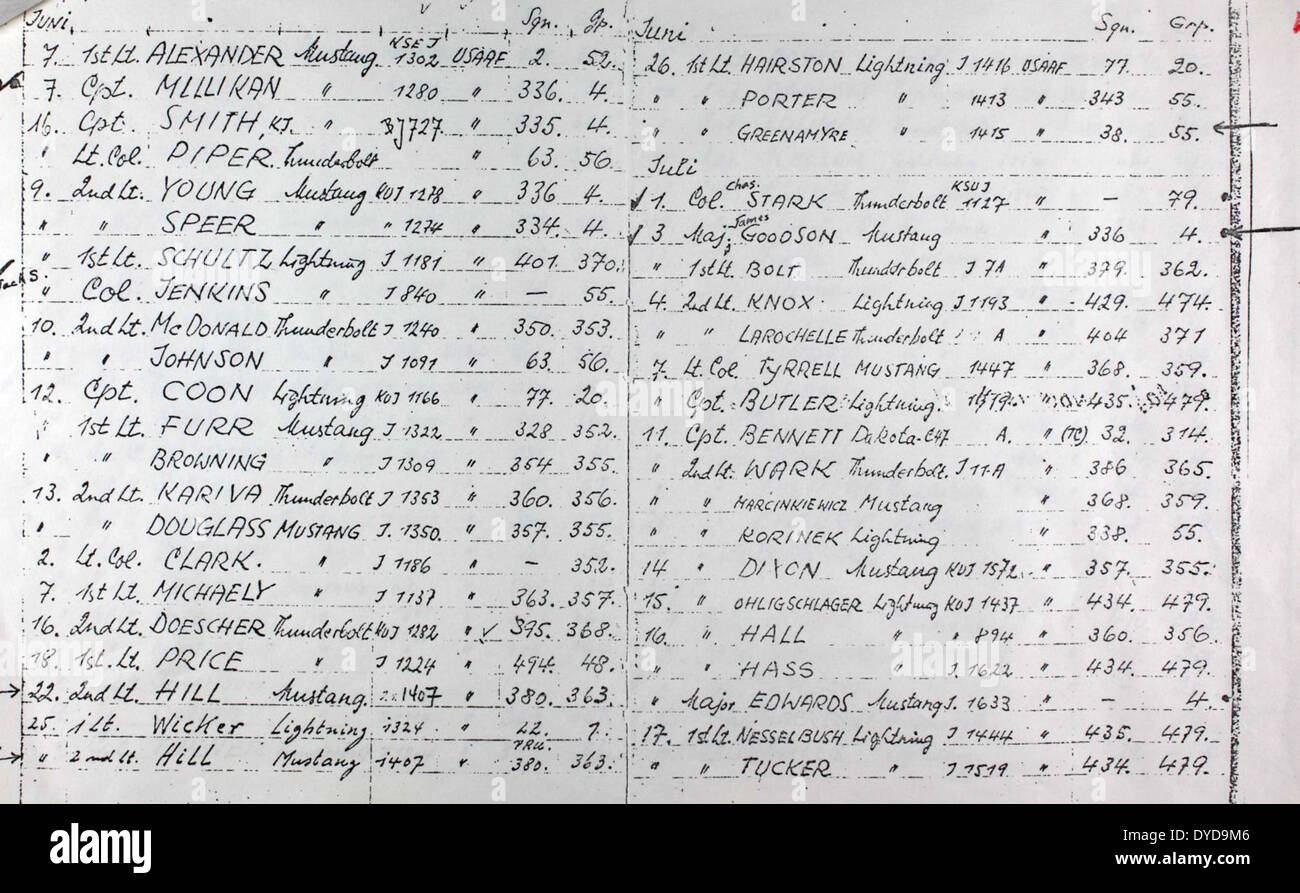 JUNI Sqn. Gp.
7. 1st Lt. ALEXANDER Mustang KSE J 1302 USAAF 2. 52.
7. Cpt. MILLIKAN " 1280 " 336. 4.
16. Cpt. SMITH, KJ. " J727 " 335. 4.
" Lt. Col. PIPER. Thunderbolt " 63. 56.
9. 2nd Lt. YOUNG Mustang KUJ 1278 " 336 4.
" " SPEER " " 1274 " 334. 4.
" 1st Lt. SCHULTZ Lightning J 1181 " 401. 370.
" Col. JENKINS " J 840 " — 55.
10. 2nd Lt. McDONALD Thunderbolt J 1240 " 350. 353.
" " JOHNSON " J 1091 " 63. 56.
12. Cpt. COON Lightning KUJ 1166 " 77. 20.
" 1st Lt. FURR Mustang J 1322 " 328 352.
" " BROWNING " J 1309 " 354 355.
13. 2nd Lt. KARIVA Thunderbolt J 1353 " 360. 356.
" " DOUGLASS MUSTANG J. 1350. " 357. 355.
2. Lt. Col. CLARK. " J 1186 " — 352.
7. 1st Lt. MICHAELY " J 1137 " 363. 357.
16. 2nd Lt. DOESCHER Thunderbolt KUJ 1282 " ✓ 395. 368.
18. 1st. Lt. PRICE " J 1224 " 494. 48.
→ 22. 2nd Lt. HILL Mustang. 1407 " 380. 363.
25. 1 Lt. Wicker Lightning 1324 " 22. 7.
→ " 2nd Lt. Hill Mustang 1407 " 380. 363.
Juni Sqn. Grp.
26. 1st Lt. HAIRSTON Lightning J 1416 USAAF 77. 20.
" " PORTER " J 1413 " 343 55.
" " GREENAMYRE " 1415 " 38. 55.
Juli
1. Col. Chas. STARK Thunderbolt KSUJ 1127 " — 79.
3 Maj. James GOODSON Mustang " 336 4.
" 1st Lt. BOLT Thunderbolt J 7A " 379. 362.
4. 2nd Lt. KNOX Lightning J 1193 " 429. 474.
" " LAROCHELLE Thunderbolt A " 404 371
7. Lt. Col. TYRRELL MUSTANG 1447 " 368. 359.
" Cpt. BUTLER Lightning. " 435. 479.
11. Cpt. BENNETT Dakota-C47 A. " (TC) 32. 314.
" 2nd Lt. WARK Thunderbolt. J 11-A " 386 365.
" " MARCINKIEWICZ Mustang " 368. 359.
" " KORINEK Lightning " 338. 55.
14 " DIXON Mustang KUJ 1572. " 357. 355.
15. " OHLIGSCHLAGER Lightning KUJ 1437 " 434. 479.
16. " HALL " " 894 " 360. 356.
" " HASS " J. 1622 " 434. 479.
" Major EDWARDS Mustang J. 1633 " - 4.
17. 1st Lt. NESSELBUSH Lightning J 1444 " 435. 479.
" " TUCKER " J 1519 " 434. 479.
alamy
a
alamy stock photo
DYD9M6
www.alamy.com